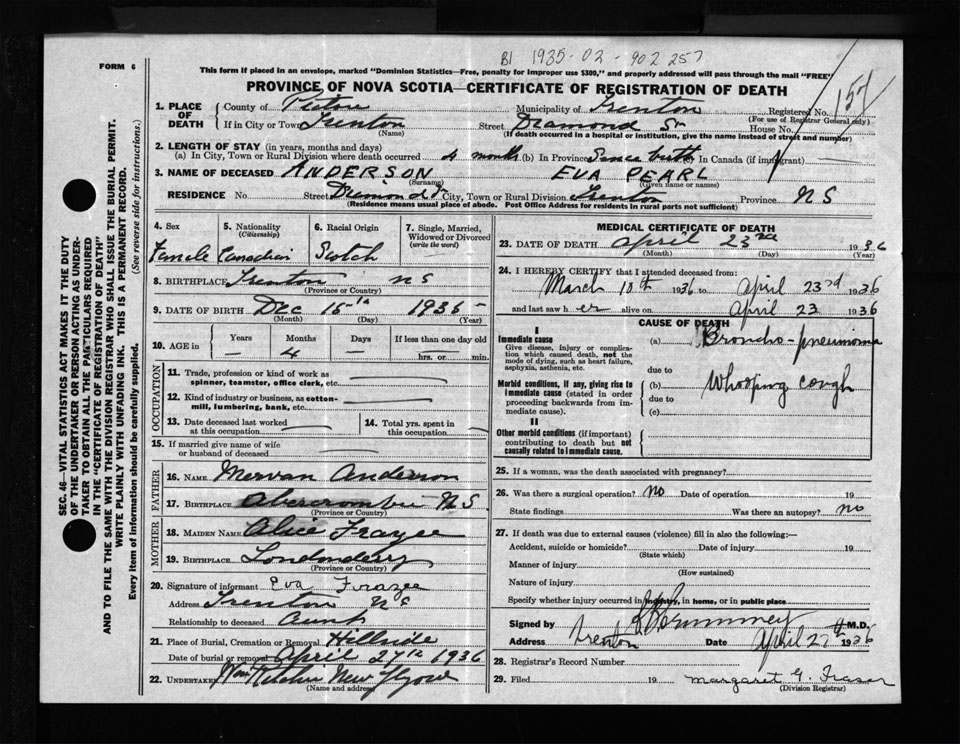 B1 1935-02-902257
FORM 6
This form if placed in an envelope, marked "Dominion Statistics—Free, penalty for improper use $300," and properly addressed will pass through the mail "FREE"
PROVINCE OF NOVA SCOTIA—CERTIFICATE OF REGISTRATION OF DEATH
SEC. 46—VITAL STATISTICS ACT MAKES IT THE DUTY
OF THE UNDERTAKER OR PERSON ACTING AS UNDER-
TAKER TO OBTAIN ALL THE PARTICULARS REQUIRED
IN THE "CERTIFICATE OF REGISTRATION OF DEATH"
AND TO FILE THE SAME WITH THE DIVISION REGISTRAR WHO SHALL ISSUE THE BURIAL PERMIT.
WRITE PLAINLY WITH UNFADING INK. THIS IS A PERMANENT RECORD.
Every item of information should be carefully supplied. (See reverse side for instructions.)
1. PLACE OF DEATH
County of Pictou Municipality of Trenton Registered No.
(For use of Registrar General only)
If in City or Town Trenton Street Diamond St House No.
(Name) (If death occurred in a hospital or institution, give the name instead of street and number)
2. LENGTH OF STAY (in years, months and days)
(a) In City, Town or Rural Division where death occurred 4 months (b) In Province Since birth (c) In Canada (if immigrant)
3. NAME OF DECEASED ANDERSON EVA PEARL
(Surname) (Given name or names)
RESIDENCE No. Street Diamond St City, Town or Rural Division Trenton Province N S
(Residence means usual place of abode. Post Office Address for residents in rural parts not sufficient)
4. Sex
5. Nationality (Citizenship)
6. Racial Origin
7. Single, Married, Widowed or Divorced (write the word)
Female Canadian Scotch
8. BIRTHPLACE Trenton N S
(Province or Country)
9. DATE OF BIRTH Dec 15th 1935
(Month) (Day) (Year)
10. AGE in Years Months Days If less than one day old
4 hrs. or min.
OCCUPATION
11. Trade, profession or kind of work as spinner, teamster, office clerk, etc.
12. Kind of industry or business, as cotton-mill, lumbering, bank, etc.
13. Date deceased last worked at this occupation
14. Total yrs. spent in this occupation
15. If married give name of wife or husband of deceased
FATHER
16. NAME Mervan Anderson
17. BIRTHPLACE Abercrombie N S
(Province or Country)
MOTHER
18. MAIDEN NAME Alice Frazee
19. BIRTHPLACE Londonderry
(Province or Country)
20. Signature of informant Eva Frazee
Address Trenton N S
Relationship to deceased Aunt
21. Place of Burial, Cremation or Removal Hillside
Date of burial or removal April 27th 1936
22. UNDERTAKER New
(Name and address)
MEDICAL CERTIFICATE OF DEATH
23. DATE OF DEATH April 23rd 1936
(Month) (Day) (Year)
24. I HEREBY CERTIFY that I attended deceased from:
March 10th 1936 to April 23rd 1936
and last saw her alive on April 23 1936
CAUSE OF DEATH
I
Immediate cause
Give disease, injury or complication which caused death, not the mode of dying, such as heart failure, asphyxia, asthenia, etc.
(a) Broncho-pneumonia
due to
Morbid conditions, if any, giving rise to immediate cause (stated in order proceeding backwards from immediate cause).
(b) Whooping cough
due to
(c)
II
Other morbid conditions (if important) contributing to death but not causally related to immediate cause.
25. If a woman, was the death associated with pregnancy?
26. Was there a surgical operation? no Date of operation 19
State findings Was there an autopsy? no
27. If death was due to external causes (violence) fill in also the following:—
Accident, suicide or homicide? Date of injury 19
(State which)
Manner of injury
(How sustained)
Nature of injury
Specify whether injury occurred in industry, in home, or in public place
Signed by M.D.
Address Trenton Date April 27th 1936
28. Registrar's Record Number
29. Filed 19 Margaret G. Fraser
(Division Registrar)